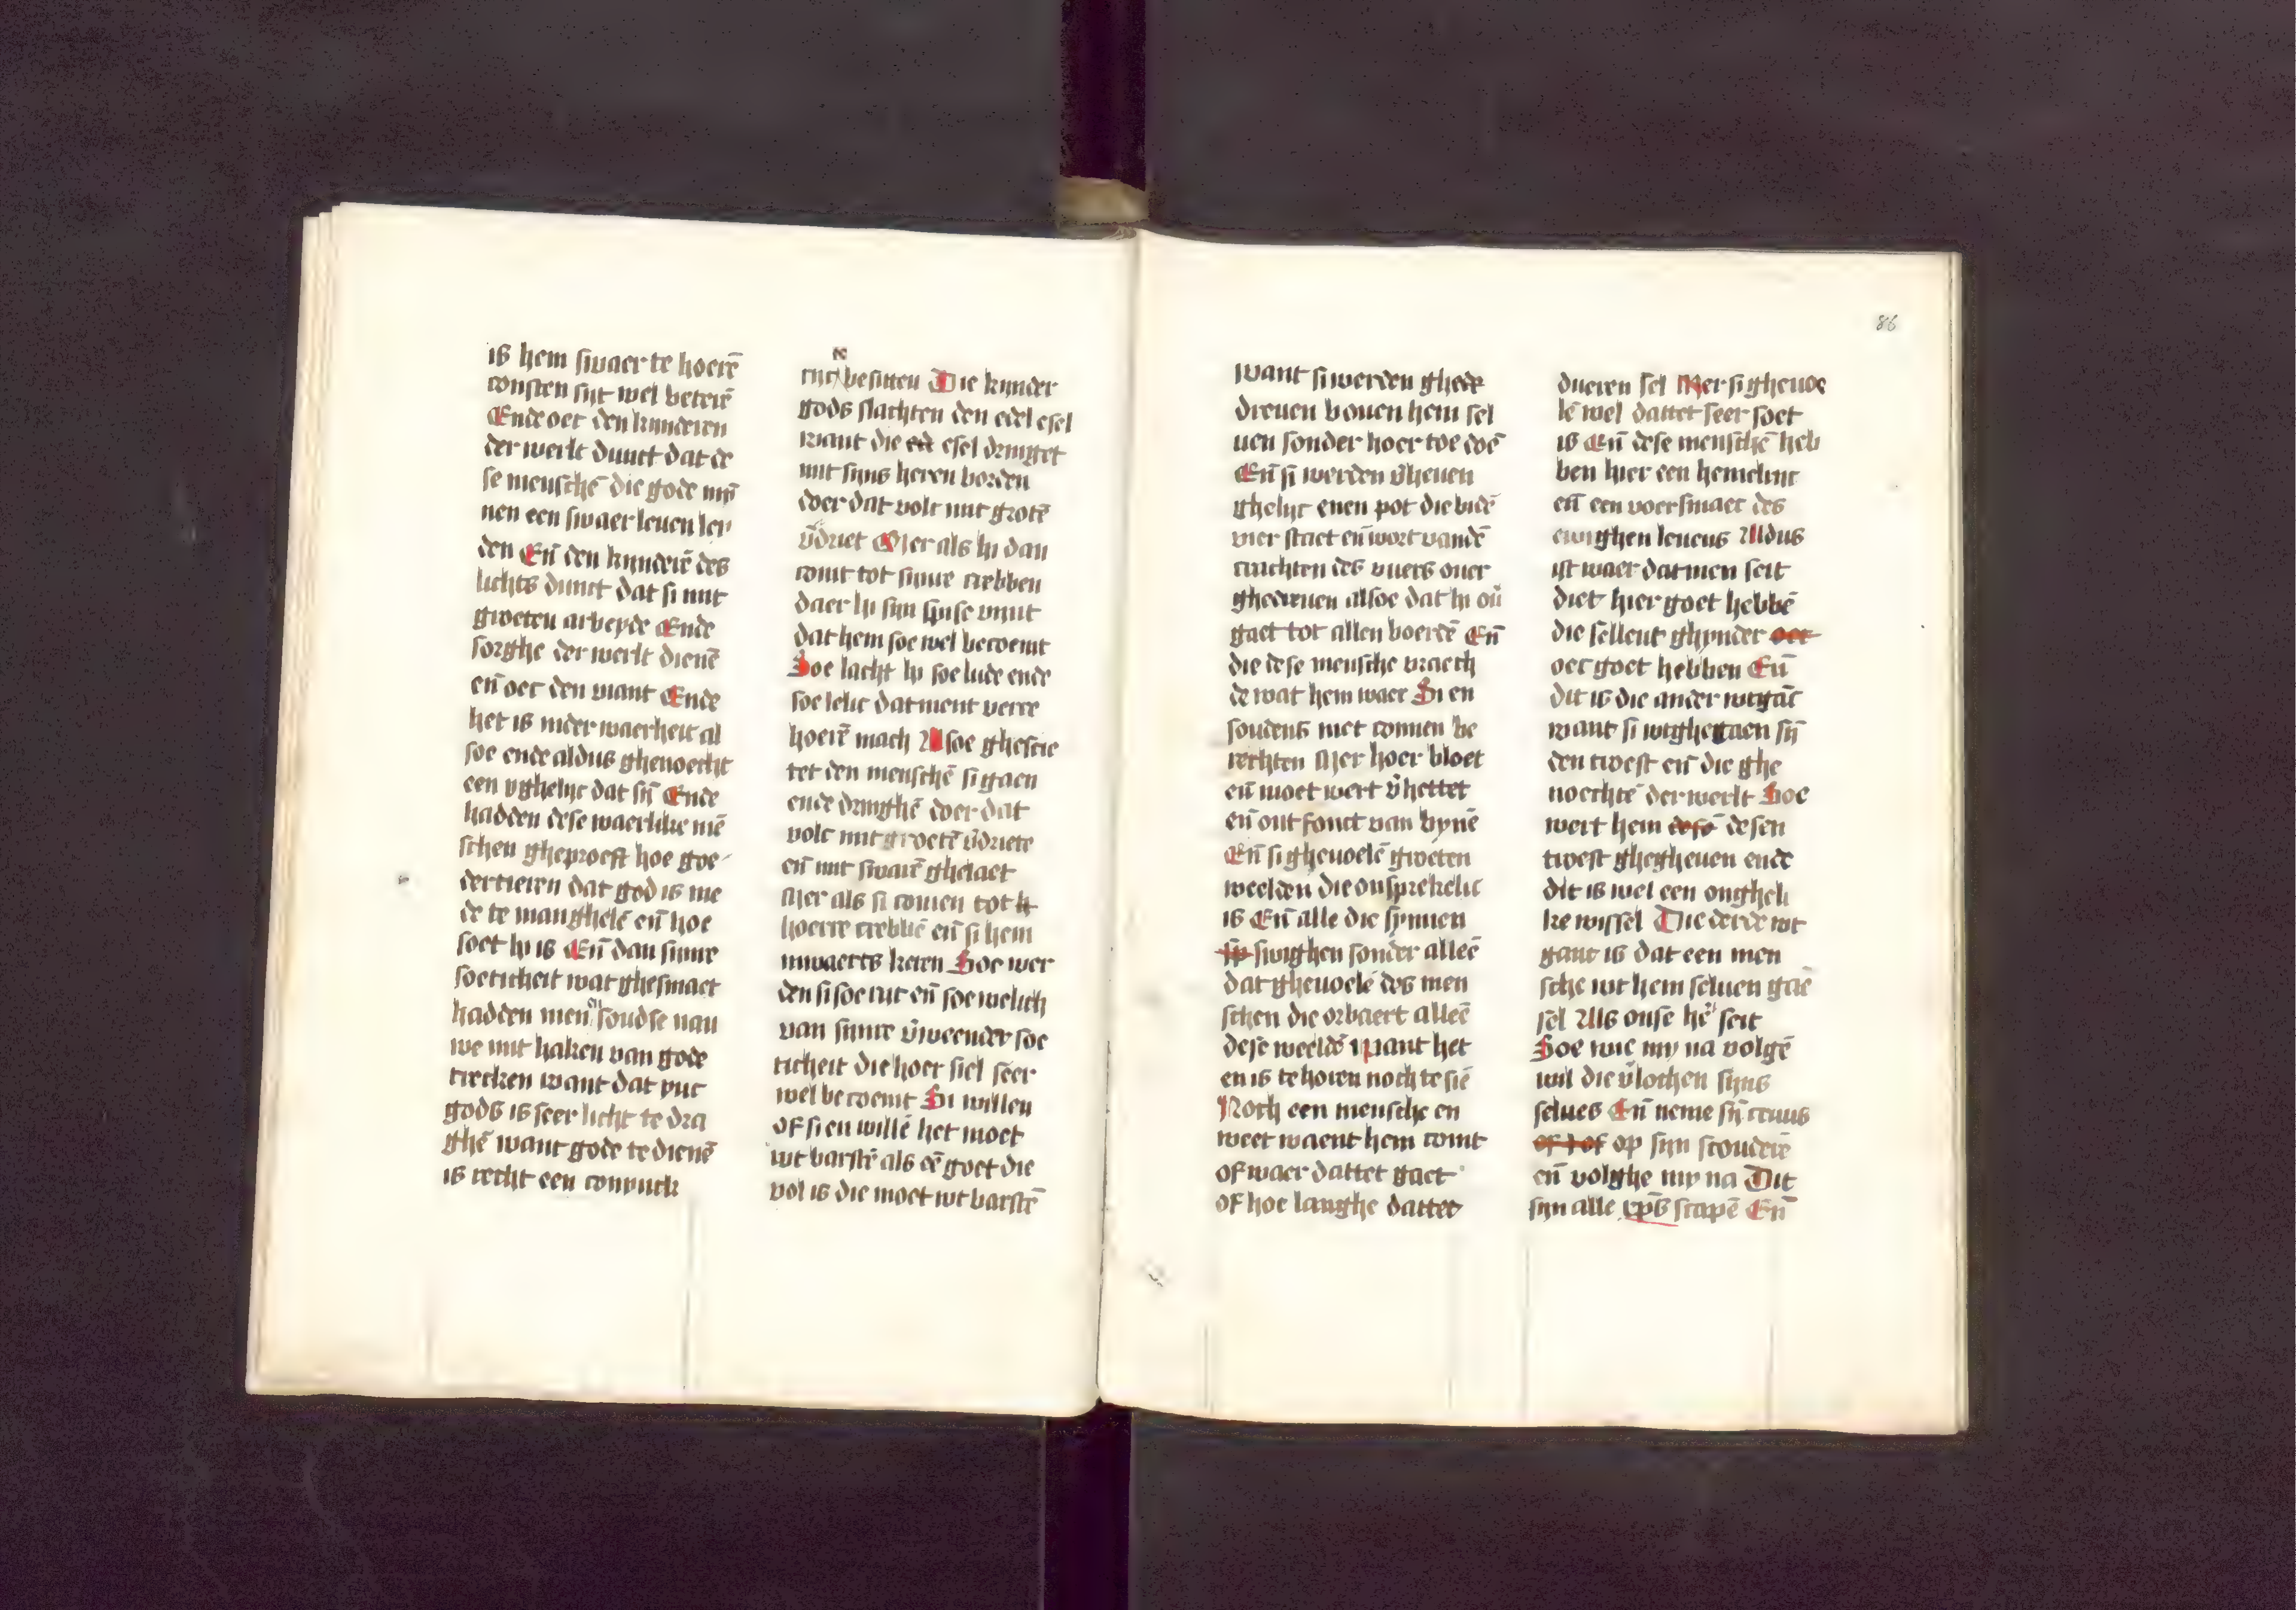 is hem swaer te hoerē
consten sijt wel beterē
Ende oec den kynderen
der werlt dunct dat de
se menschē die gode mȳ
nen een swaer leuen lei
den Eñ den kynderē des
lichts dunct dat si mit
groeten arbeyde Ende
sorghe der werlt dienē
eñ oec den viant Ende
het is meer waerheit al
soe ende aldus ghenoecht
een yghelijc dat sȳ Ende
hadden dese waerlike mē
schen gheproeft hoe goe
dertieren dat god is me
de te manghelē eñ hoe
soet hi is Eñ dan sijnre
soeticheit wat ghesmaect
hadden men soudse nau
we mit haken van gode
trecken want dat yuc
gods is seer licht te dra
ghē want gode te dienē
is recht een conynck
rijc besitten Die kynder
gods slachten den edel esel
want die ed esel dringet
mit sijns heren borden
doer dat volc mit grotē
v̄driet Mer als hi dan
comt tot sijnre crebben
daer hi sijn spise vijnt
dat hem soe wel becoemt
Soe lacht hi soe lude ende
soe lelic datment verre
hoerē mach Alsoe ghescie
tet den menschē si gaen
ende dringhē doer dat
volc mit groetē v̄driete
eñ mit swarē ghelaet
Mer als si comen tot h
hoerre crebbē eñ si hem
inwaerts keren Soe wer
den si soe rijc eñ soe welich
van sijnre v̄weender soe
ticheit die hoer siel seer
wel becoemt Si willen
of si en willē het moet
wt barstē als dē goet die
vol is die moet wt barstē
86
want si werden ghede
dreuen bouen hem sel
uen sonder hoer toe doē
Eñ si werden v̄heuen
ghelijc enen pot die bidē
vier staet eñ wort vandē
crachten des vuers ouer
ghedreuen alsoe dat hi ou̅
gaet tot allen boerdē Eñ
die dese mensche vraech
de wat hem waer Si en
soudens niet connen be
rechten Mer hoer bloet
eñ moet wert v̄hettet
eñ ont fonct van bynē
Eñ si gheuoelē groeten
weelden die onsprekelic
is Eñ alle die synnen
sp swighen sonder alleē
dat gheuoelē des men
schen die orbaert alleē
dese weeldē want het
en is te horen noch te siē
Noch een mensche en
weet waent hem comt
of waer dattet gaet
of hoe langhe dattet
dueren sel Mer si gheuoe
lē wel dattet seer soet
is Eñ dese menschē heb
ben hier een hemelrijc
eñ een voersmaec des
ewighen leuens Aldus
ist waer datmen seit
diet hier goet hebbē
die sellent ghynder oec
oec goet hebben Eñ
dit is die ander wtgāc
want si wtghegaen sȳ
den troest eñ die ghe
noechtē der werlt Soe
wert hem dese desen
troest ghegheuen ende
dit is wel een ongheli
ke wissel Die derde wt
ganc is dat een men
sche wt hem seluen gaē
sel Als onse hē seit
Soe wie my na volgē
wil die v̄lochen sijns
selues Eñ neme sȳ cruus
of i of op sijn scouderē
eñ volghe my na Dit
sijn alle xp̄s scapē Eñ